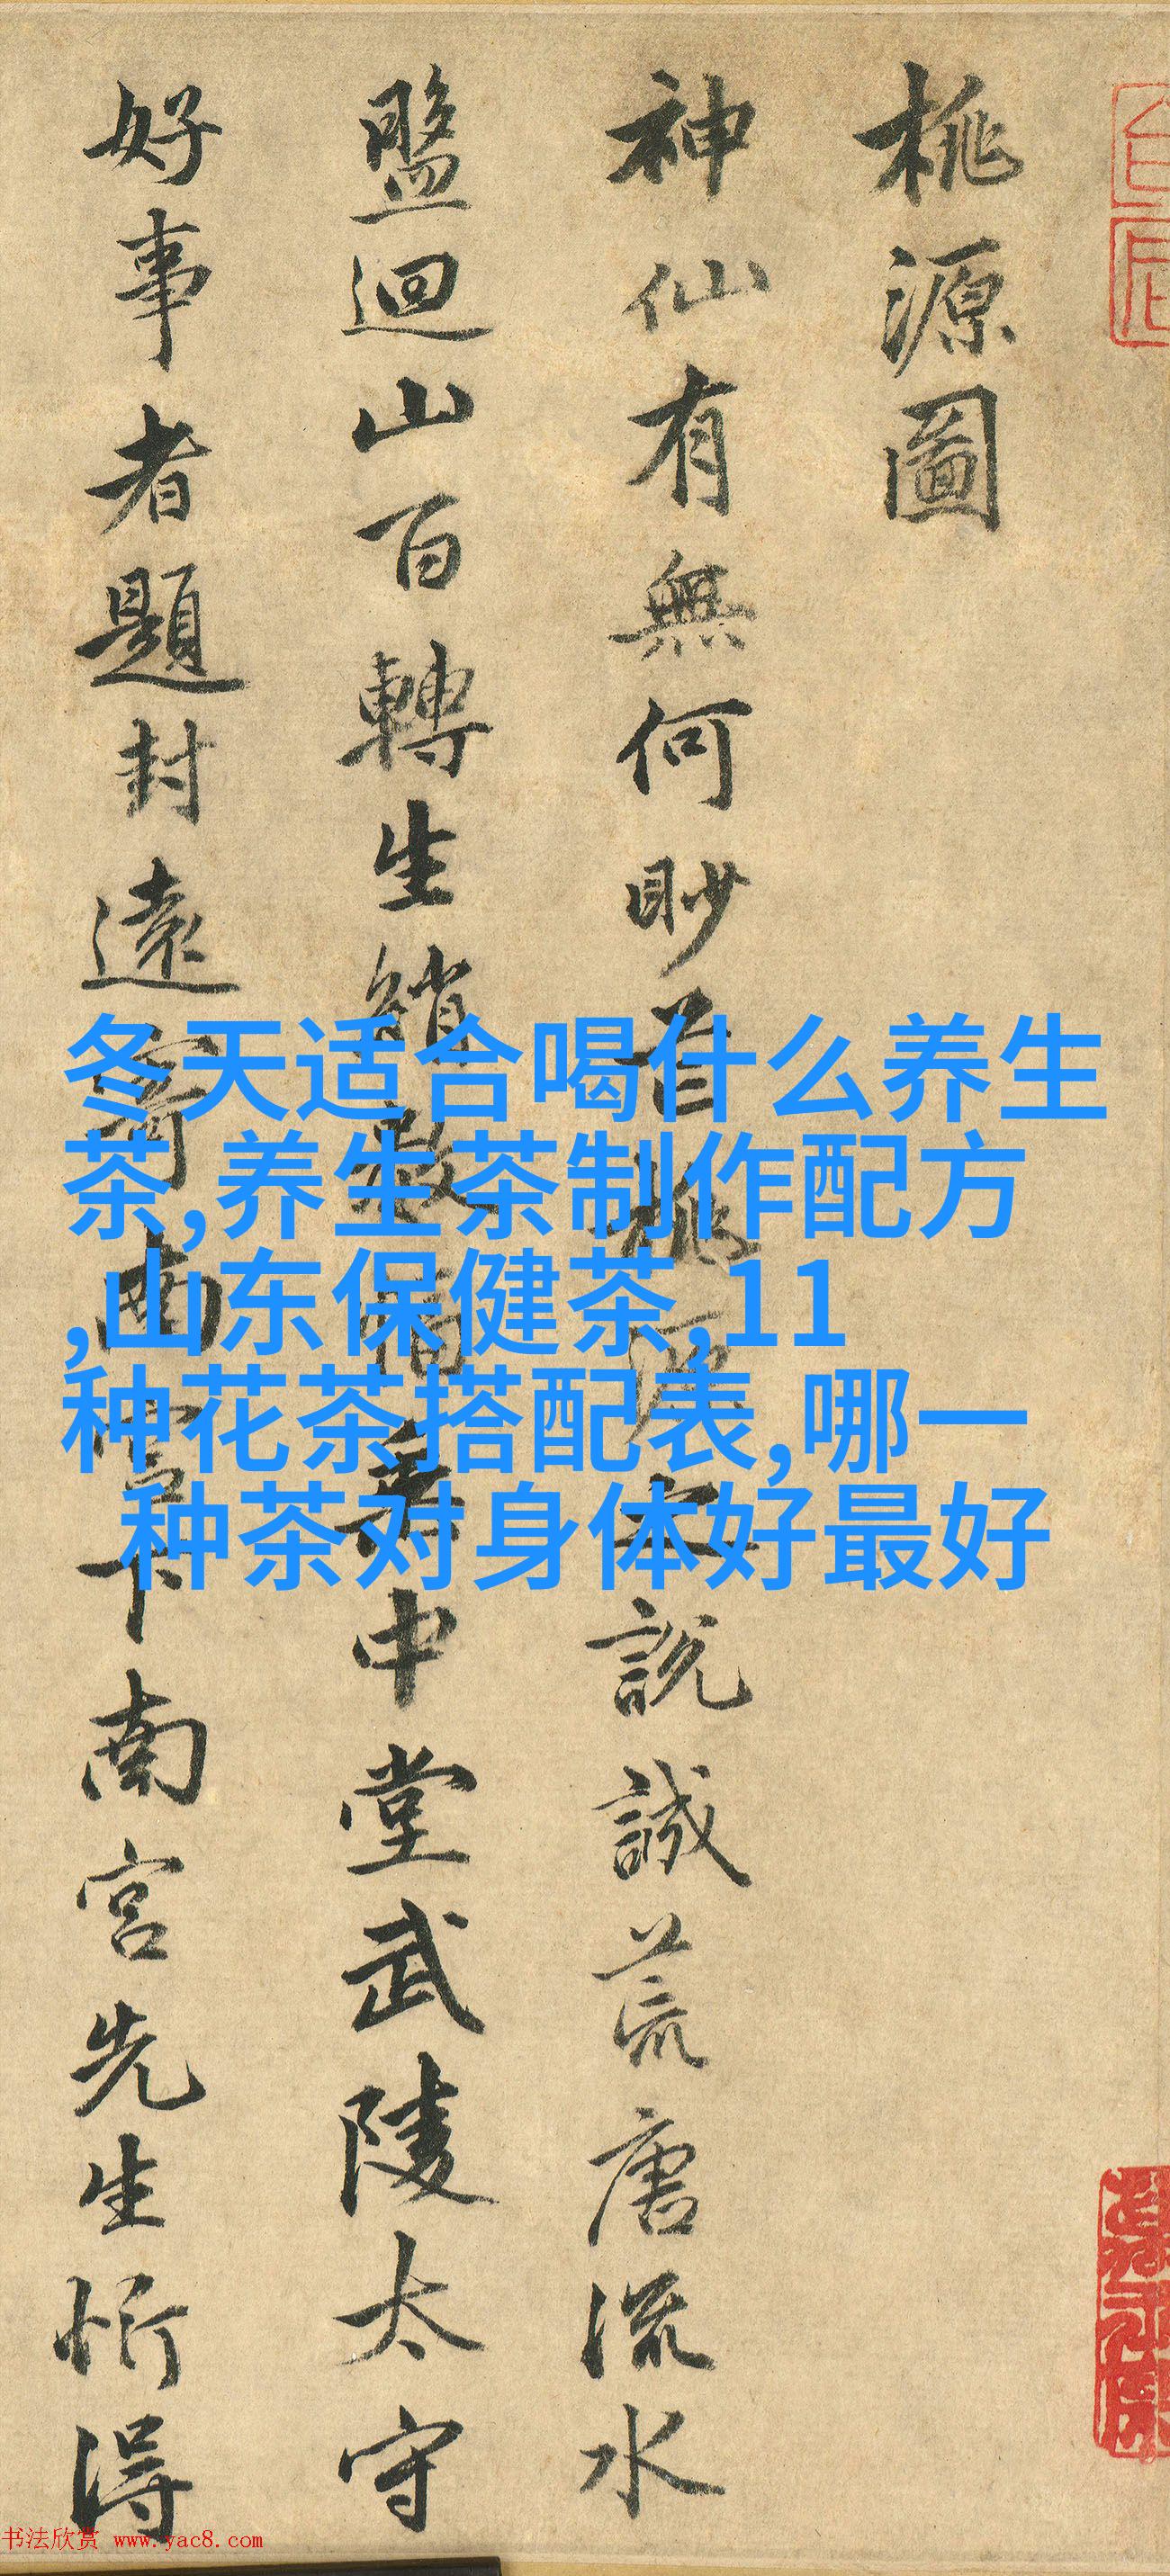 桃源圖
神仙有無何眇桃源之說誠荒唐流水
盤迴山百轉生綃數幅垂中堂武陵太守
好事者題封遠寄南宮下南宮先生忻得
冬天适合喝什么养生
茶,养生茶制作配方
,山东保健茶,11
种花茶搭配表,哪一
种茶对身体好最好
书法欣赏 www.yac8.com